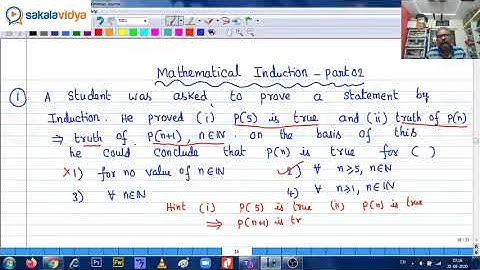 sakalavidya
Mathematical Induction - part 02
① A student was asked to prove a statement by
Induction. He proved (i) P(5) is true and (ii) truth of P(n)
⇒ truth of P(n+1), n∈ℕ. on the basis of this
he could conclude that P(n) is true for ( )
×1) for no value of n∈ℕ 2) ∀ n≥5, n∈ℕ
3) ∀ n∈ℕ 4) ∀ n≥1, n∈ℕ
Hint (i) P(5) is true (ii) P(n) is true
⇒ P(n+1) is tr